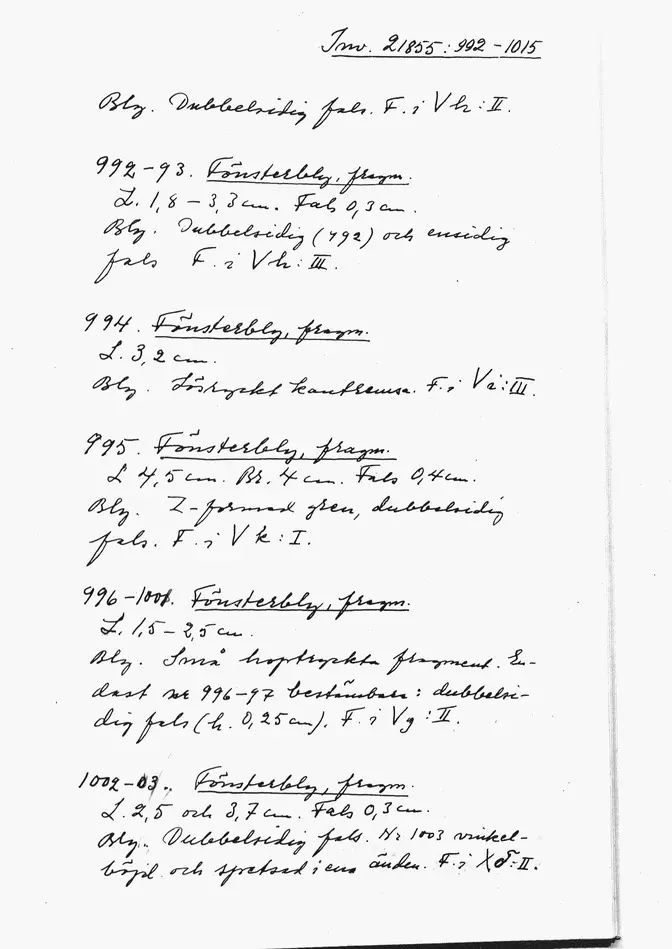 Inv. 21855:992-1015
Bly. Dubbelsidig fals. F. i V h : II.
992-93. Fönsterbly, fragm.
L. 1,8 - 3,3 cm. Fals 0,3 cm.
Bly. Dubbelsidig (992) och ensidig
fals F. i V h : III.
994. Fönsterbly, fragm.
L. 3,2 cm.
Bly. Lösryckt kantremsa. F. i V i : III.
995. Fönsterbly, fragm.
L 4,5 cm. Br. 4 cm. Fals 0,4 cm.
Bly. Z-formad gren, dubbelsidig
fals. F. i V k : I.
996-1001. Fönsterbly, fragm.
L. 1,5 - 2,5 cm.
Bly. Små hoptryckta fragment. En-
dast nr 996-97 bestämbara: dubbelsi-
dig fals (h. 0,25 cm). F. i V g : II.
1002-03. Fönsterbly, fragm.
L. 2,5 och 3,7 cm. Fals 0,3 cm.
Bly. Dubbelsidig fals. Nr 1003 vinkel-
böjd och spetsad i ena änden. F. i X δ : II.